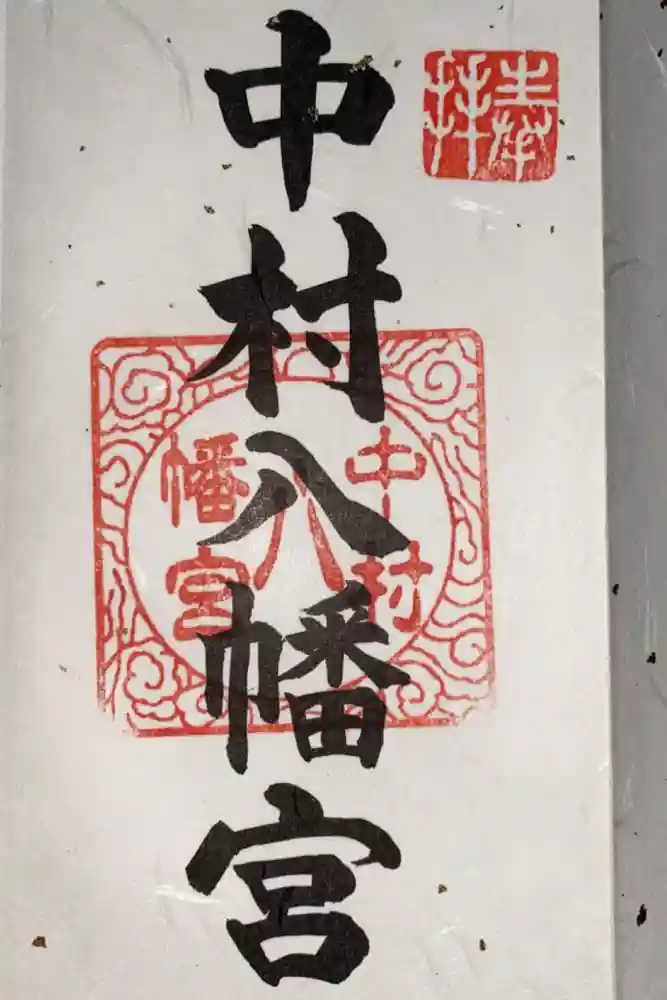 奉拝
中村八幡宮
中村
八
幡宮